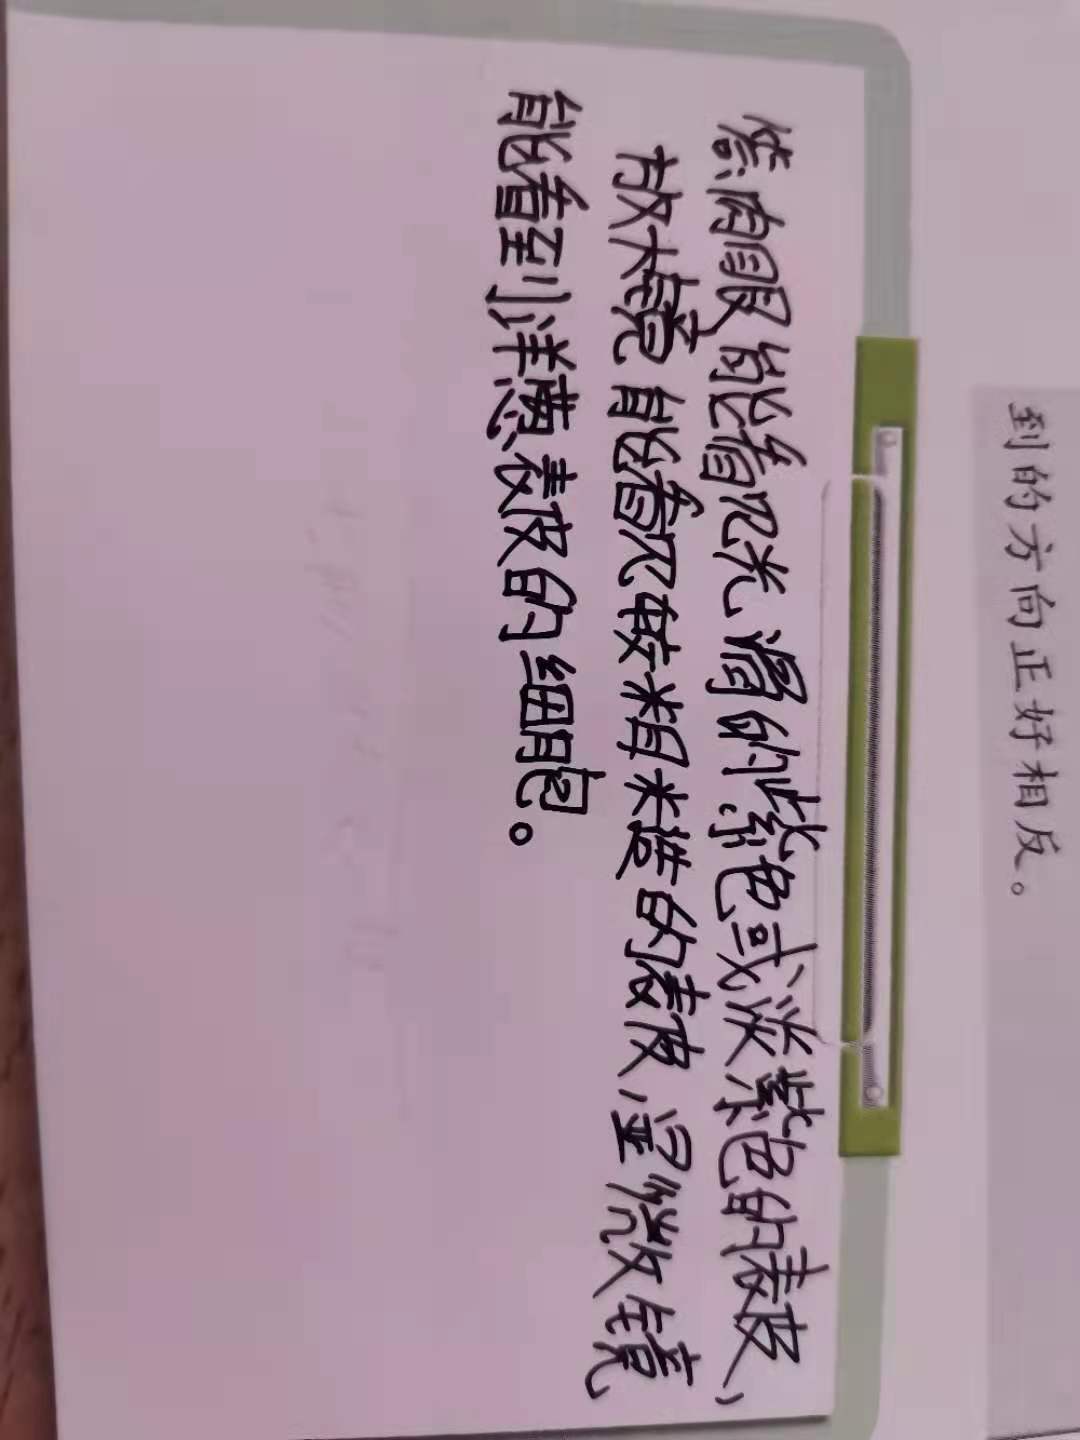 到的方向正好相反。
您肉眼能看见光滑的紫色或淡紫色的表皮,
放大镜能看见较粗糙的表皮,显微镜
能看到洋葱表皮的细胞。